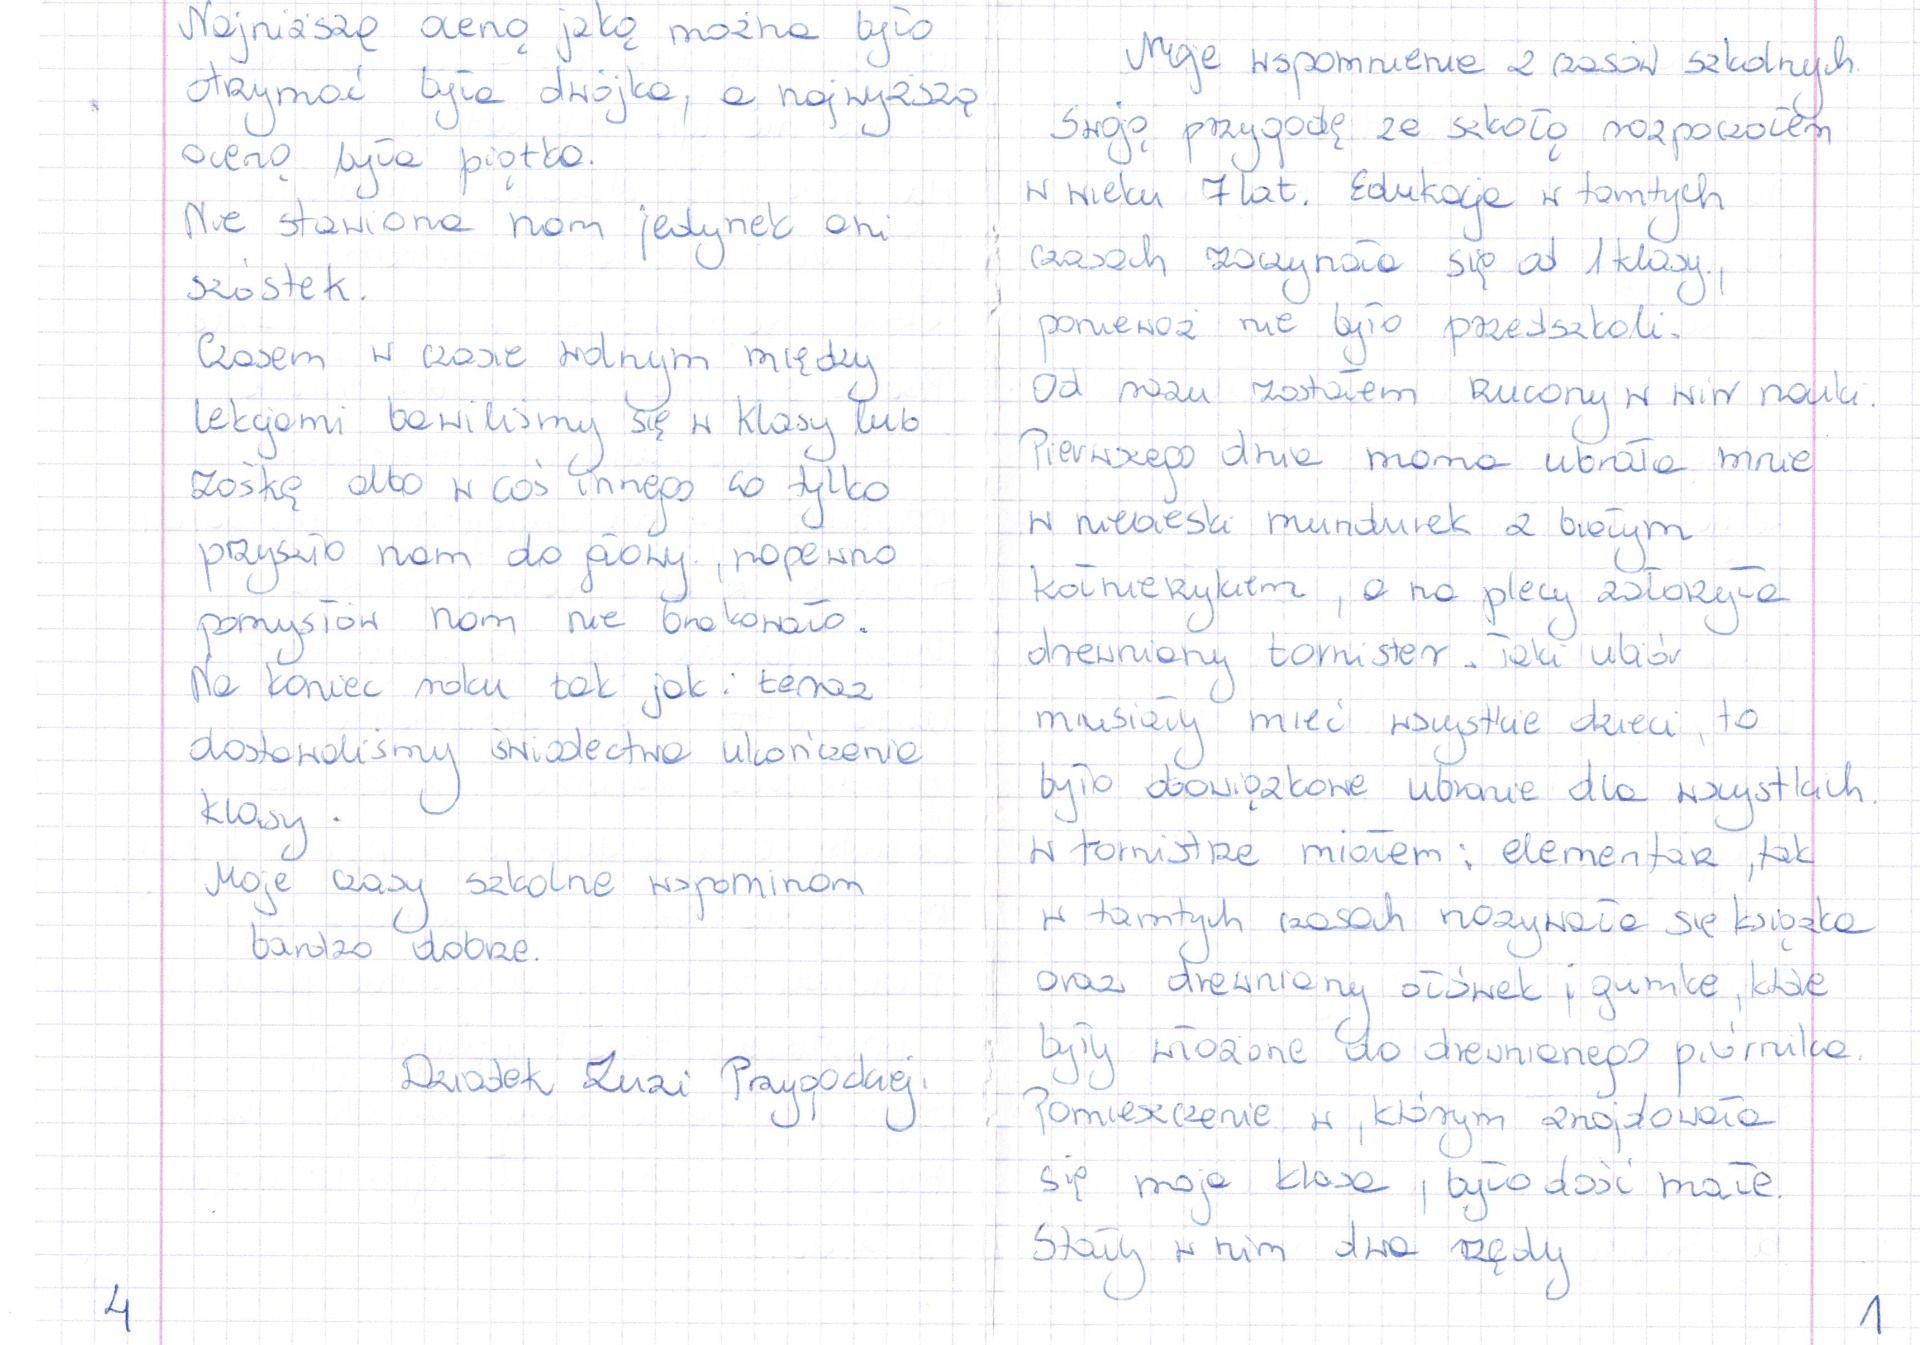 Najniższą oceną jaką można było
otrzymać była dwójka, a najwyższą
oceną była piątka.
Nie stawiano nam jedynek ani
szóstek.
Czasem w czasie wolnym między
lekcjami bawiliśmy się w klasy lub
zośkę albo w coś innego co tylko
przyszło nam do głowy, napewno
pomysłów nam nie brakowało.
Na koniec roku tak jak i teraz
dostawaliśmy świadectwa ukończenia
klasy.
Moje czasy szkolne wspominam
bardzo dobrze.
Dziadek Zuzi Przygodzkiej.
4
Moje wspomnienie z czasów szkolnych.
Swoją przygodę ze szkołą rozpocząłem
w wieku 7 lat. Edukacja w tamtych
czasach zaczynała się od 1 klasy,
ponieważ nie było przedszkoli.
Od razu zostałem rzucony w wir nauki.
Pierwszego dnia mama ubrała mnie
w niebieski mundurek z białym
kołnierzykiem, a na plecy założyła
drewniany tornister. Taki ubiór
musiały mieć wszystkie dzieci, to
było obowiązkowe ubranie dla wszystkich.
W tornistrze miałem: elementarz, tak
w tamtych czasach nazywała się książka
oraz drewniany ołówek i gumkę, które
były włożone do drewnianego piórnika.
Pomieszczenie w, którym znajdowała
się moja klasa, było dość małe.
Stały w nim dwa rzędy
1